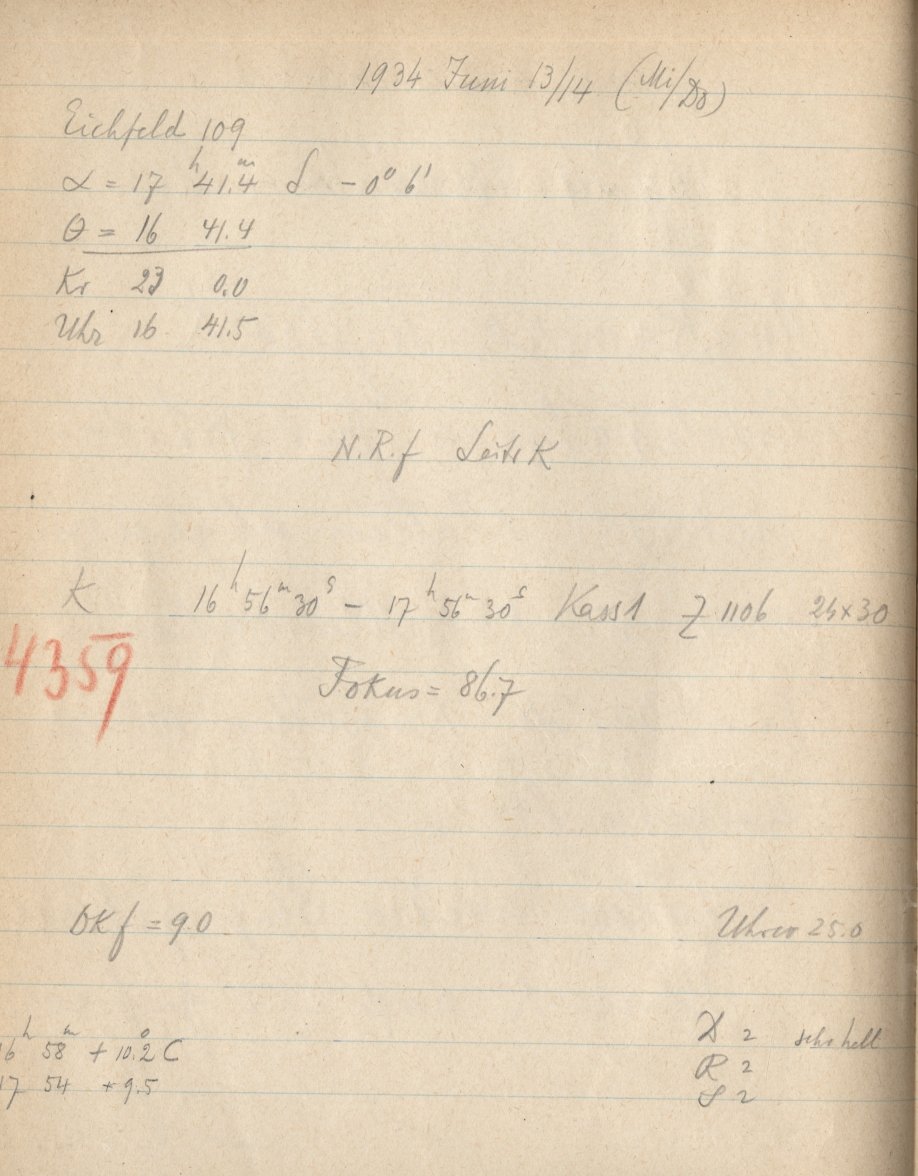 1934 Juni 13/14 (Mi/Do)
Eichfeld 109
α = 17ʰ 41.4ᵐ δ - 0° 6'
θ = 16 41.4
Kr 23 0.0
Uhr 16 41.5
N.R.f Leitr K
K 16ʰ 56ᵐ 30ˢ - 17ʰ 56ᵐ 30ˢ Kass 1 Z 1106 24×30
4359
Fokus = 86.7
DKf = 9.0 Uhrcor 25.0
16ʰ 58ᵐ + 10.2° C
17 54 + 9.5
D 2 sehr hell
R 2
S 2